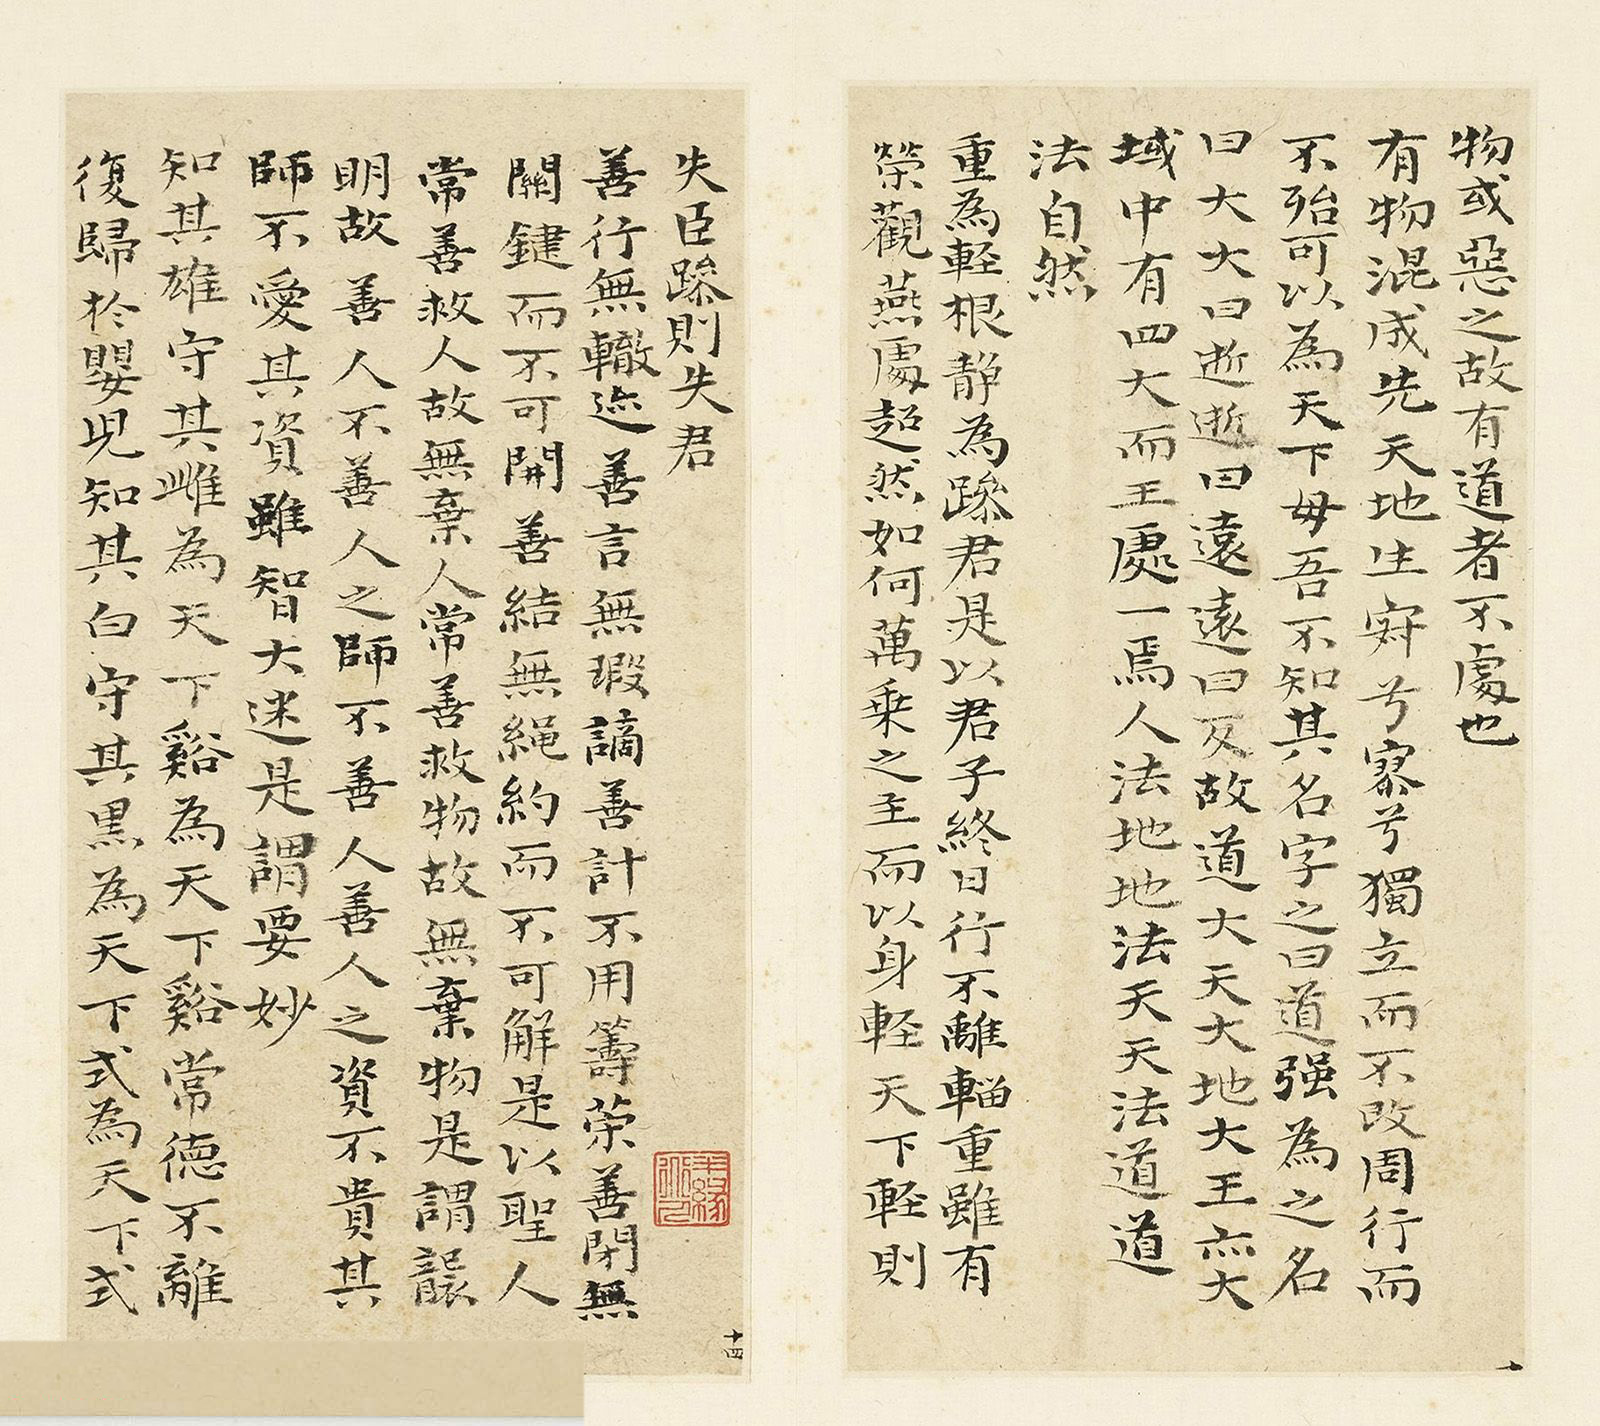 物或惡之故有道者不處也
有物混成先天地生寂兮寥兮獨立而不改周行而
不殆可以為天下母吾不知其名字之曰道强為之名
曰大大曰逝逝曰遠遠曰反故道大天大地大王亦大
域中有四大而王處一焉人法地地法天天法道道
法自然
重為輕根靜為躁君是以君子終日行不離輜重雖有
榮觀燕處超然如何萬乗之主而以身輕天下輕則
失臣躁則失君
善行無轍迹善言無瑕謫善計不用籌策善閉無
關鍵而不可開善結無繩約而不可解是以聖人
常善救人故無棄人常善救物故無棄物是謂襲
明故善人不善人之師不善人善人之資不貴其
師不愛其資雖智大迷是謂要妙
知其雄守其雌為天下谿為天下谿常德不離
復歸於嬰児知其白守其黒為天下式為天下式
十四